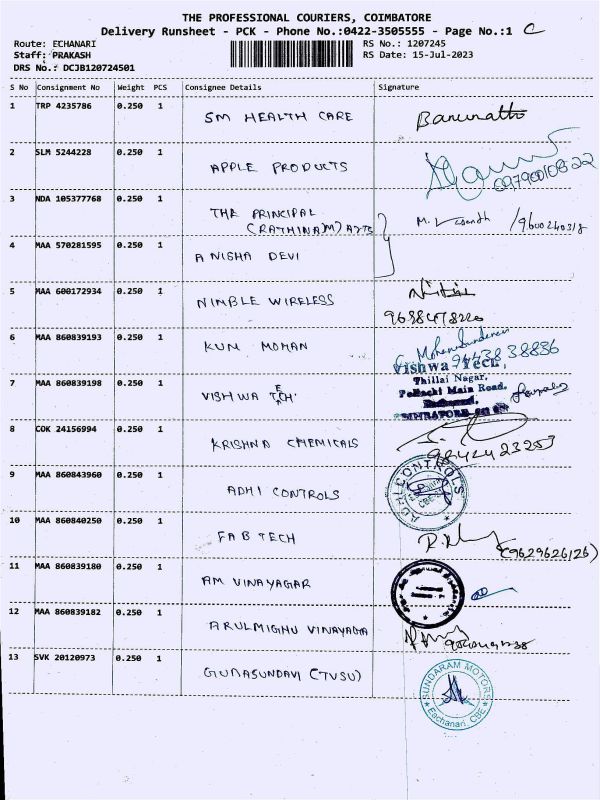 THE PROFESSIONAL COURIERS, COIMBATORE
Delivery Runsheet - PCK - Phone No.:0422-3505555 - Page No.:1 C
Route: ECHANARI RS No.: 1207245
Staff: PRAKASH RS Date: 15-Jul-2023
DRS No.: DCJB120724501
S No Consignment No Weight PCS Consignee Details Signature
1 TRP 4235786 0.250 1 SM HEALTH CARE
2 SLM 5244228 0.250 1 APPLE PRODUCTS
3 NDA 105377768 0.250 1 THE PRINCIPAL
(RATHINA(M) ARTS M. Vasanth /9600240318
4 MAA 570281595 0.250 1 ANISHA DEVI
5 MAA 600172934 0.250 1 NIMBLE WIRELESS
6 MAA 860839193 0.250 1 KUM MOHAN Mohanasundaram
94438 38836
7 MAA 860839198 0.250 1 VISHWA TECH
Vishwa Tech,
Thillai Nagar,
Pollachi Main Road,
8 COK 24156994 0.250 1 KRISHNA CHEMICALS 9842423253
9 MAA 860843960 0.250 1 ADHI CONTROLS
ADHI CONTROLS
10 MAA 860840250 0.250 1 FAB TECH (9629626126)
11 MAA 860839180 0.250 1 AM VINAYAGAR
12 MAA 860839182 0.250 1 ARULMIGHU VINAYAGA
13 SVK 20120973 0.250 1 GUNASUNDAVI (TVSU)
SUNDARAM MOTORS
Eachanari, CBE